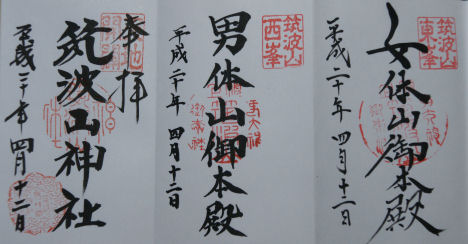 女体山御本殿
平成二十年 四月十二日
筑波山
東峯
男体山御本殿
平成二十年 四月十二日
筑波山
西峯
奉拝
筑波山神社
平成二十年 四月十二日